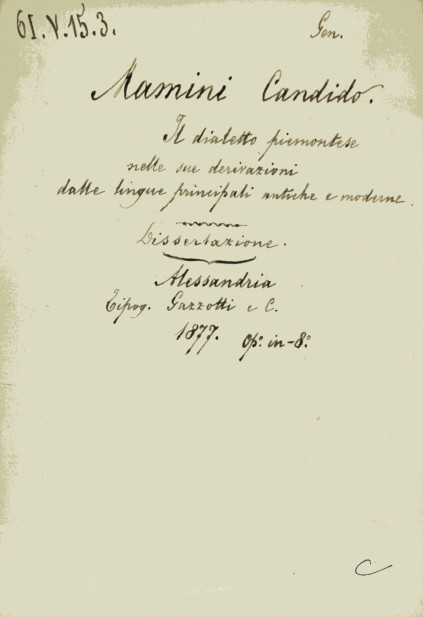 61.V.15.3.
Gen.
Mamini Candido.
Il dialetto piemontese
nelle sue derivazioni
dalle lingue principali antiche e moderne.
Dissertazione.
Alessandria
Tipog. Gazzotti e C.
1877. op.º in-8.º
C